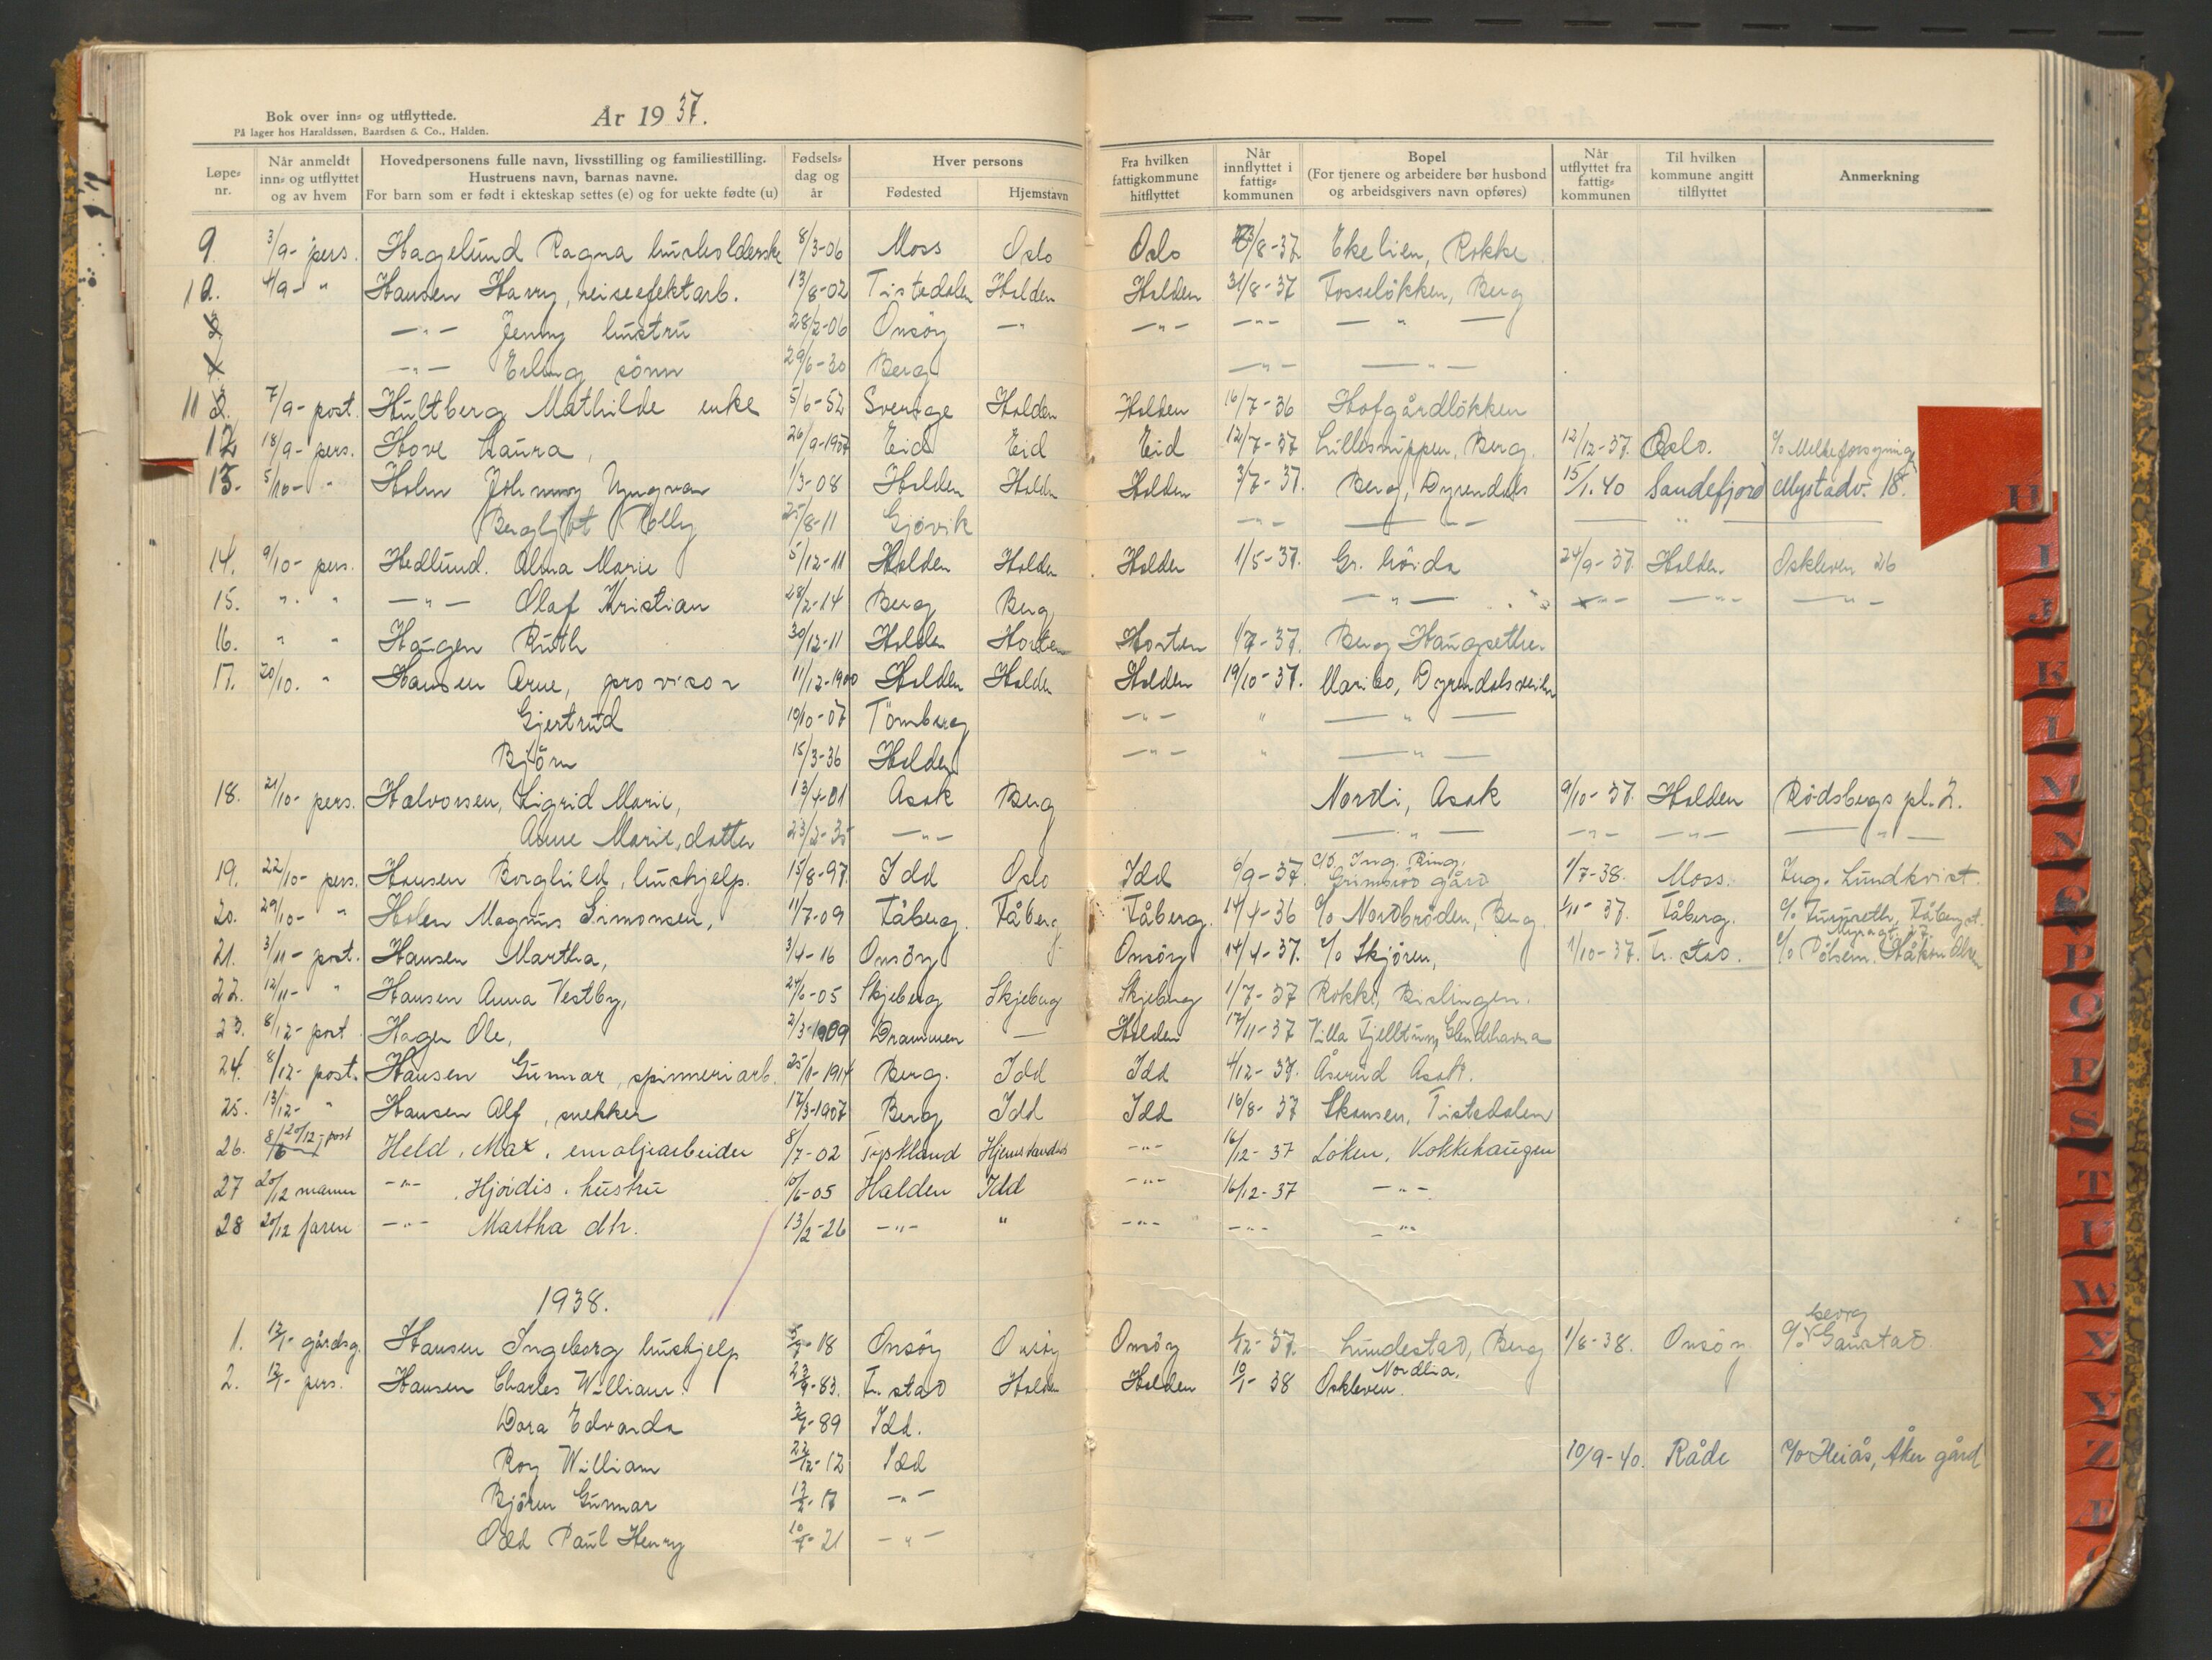 Bok over inn- og utflyttede.
På lager hos Haraldssøn, Baardsen & Co., Halden.
År 1937.
Løpe-nr. Når anmeldt inn- og utflyttet og av hvem Hovedpersonens fulle navn, livsstilling og familiestilling. Hustruens navn, barnas navne. For barn som er født i ekteskap settes (e) og for uekte fødte (u) Fødsels-dag og år Hver persons Fødested Hjemstavn Fra hvilken fattigkommune hitflyttet Når innflyttet i fattig-kommunen Bopel (For tjenere og arbeidere bør husbond og arbeidsgivers navn opføres) Når utflyttet fra fattig-kommunen Til hvilken kommune angitt tilflyttet Anmerkning
9. 3/9- pers. Hagelund Ragna husholderske 8/3-06 Moss Oslo Oslo /8-37 Ekelien, Rokke
10. 4/9- " Hansen Harry, reiseefektarb. 13/8-02 Tistedalen Halden Halden 31/8-37 Fosseløkken, Berg
—"— Jenny hustru 28/2-06 Onsøy —" —"— —"— — " —
—"— Erling sønn 29/6-30 Berg —"— —"—
11 7/9- post. Hultberg Mathilde enke 5/6-52 Sverige Halden Halden 16/7-36 Hofgårdløkken
12 18/9- pers. Hove Laura, 26/9-1907 Eid Eid Eid 12/7-37 Lillesnippen, Berg. 12/12-37. Oslo. c/o Melkeforsyning
13. 5/10- " Holm Johnny Yngvar 1/3-08 Halden Halden Halden 3/7-37. Berg, Dyrendals 15/1.40 Sandefjord Mystadv. 18.
Bergljot Elly 25/8-11 Gjøvik —"— —"— "
14. 9/10- pers. Hedlund. Alma Marie 5/12-11 Halden Halden Halden 1/5-37. Gr. høida 24/9-37. Halden. Oskleven 26
15. " " —"— Olaf Kristian 28/2-14 Berg Berg —"— —"— —"— —"—
16. " " Haugen Ruth 30/12-11 Halden Horten Horten 1/7-37. Berg Haugsether
17. 20/10. " Hansen Arne, provisor 11/12-1900 Halden Halden Halden 19/10-37. Maribo, Dyrendalsveien
Gjertrud 19/10-07 Tømberg —"— " — " —
Bjørn 15/3-36 Halden —"— " — " —
18. 21/10- pers. Halvorsen, Sigrid Marie, 13/4-01 Asak Berg Nordi, Asak 9/10-37. Halden Rødsbergs pl. 2.
Anne Marie, datter 23/2-35 —"— — " — —"— —"— — " —
19. 22/10- pers. Hansen Borghild, hushjelp. 15/8-97. Idd Oslo Idd 6/9-37. c/o. Ing. Ring, Grimsrød gård 1/7-38. Moss. Ing. Lundkvist.
20. 29/10- " Holen Magnus Simonsen, 11/7-09 Fåberg. Fåberg Fåberg. 14/4-36 c/o Nordbrøden, Berg. 1/11-37. Fåberg. c/o Fåberg st.
21. 3/11- post. Hansen Martha, 3/4-16 Onsøy Onsøy 14/4-37. c/o Skjøren, 1/10-37. Fr. stad. c/o Pølsem. Håkon Olsen
22. 12/11- " Hansen Anna Vestby, 24/6-05 Skjeberg Skjeberg Skjeberg 1/7-37 Rokke, Bislingen.
23. 8/12- post Hagen Ole, 2/3-1909 Drammen — Halden 17/11-37 Villa Fjelltun,
24. 8/12- post. Hansen Gunnar, spinneriarb. 25/11-1914 Berg. Idd Idd 4/12-37. Åserud Asak.
25. 13/12- " Hansen Alf, snekker 17/3-1907 Berg Idd Idd 16/8-37 Skansen, Tistedalen
26. 20/12- post Held, Max, emaljearbeider 8/7-02 Tyskland Hjemstavnsløs —"— 16/12-37 Løken, Kokkehaugen
27 20/12 mannen —"— Hjørdis, hustru 10/6-05 Halden Idd —"— 16/12-37 —"—
28 20/12 faren —"— Martha dtr. 13/2-26 —"— " —"— —"— —"—
1938.
1. 12/1- gårdsg. Hansen Ingeborg hushjelp -18 Onsøy Onsøy Onsøy 1/12-37. Lundestad, Berg 1/8-38. Onsøy c/o Georg Gaustad
2. 12/1- pers. Hansen Charles William. -83. Fr. stad Halden Halden 10/1-38 Oskleven. Nordlia.
Dora Edvarda -89 Idd.
Roy William 22/12-12 Idd 10/9-40. Råde c/o Heiås, Åker gård
Bjørn Gunnar -17 —"—
Odd Paul Henry -21 —"—
H I J K L M N O P Q R S T U W X Y Z Æ